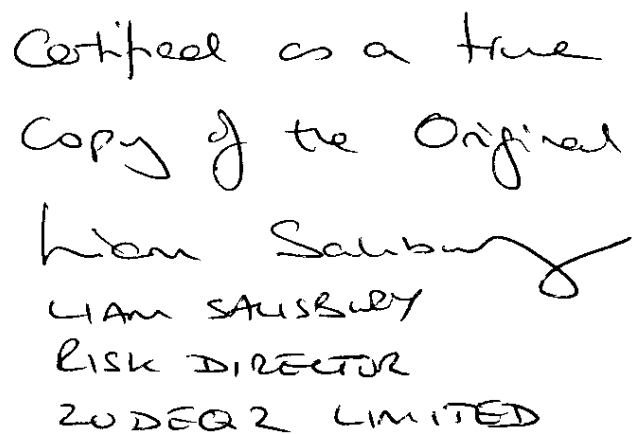 Certified as a true
Copy of the Original
Liam Salisbury
LIAM SALISBURY
RISK DIRECTOR
ZODEQ2 LIMITED